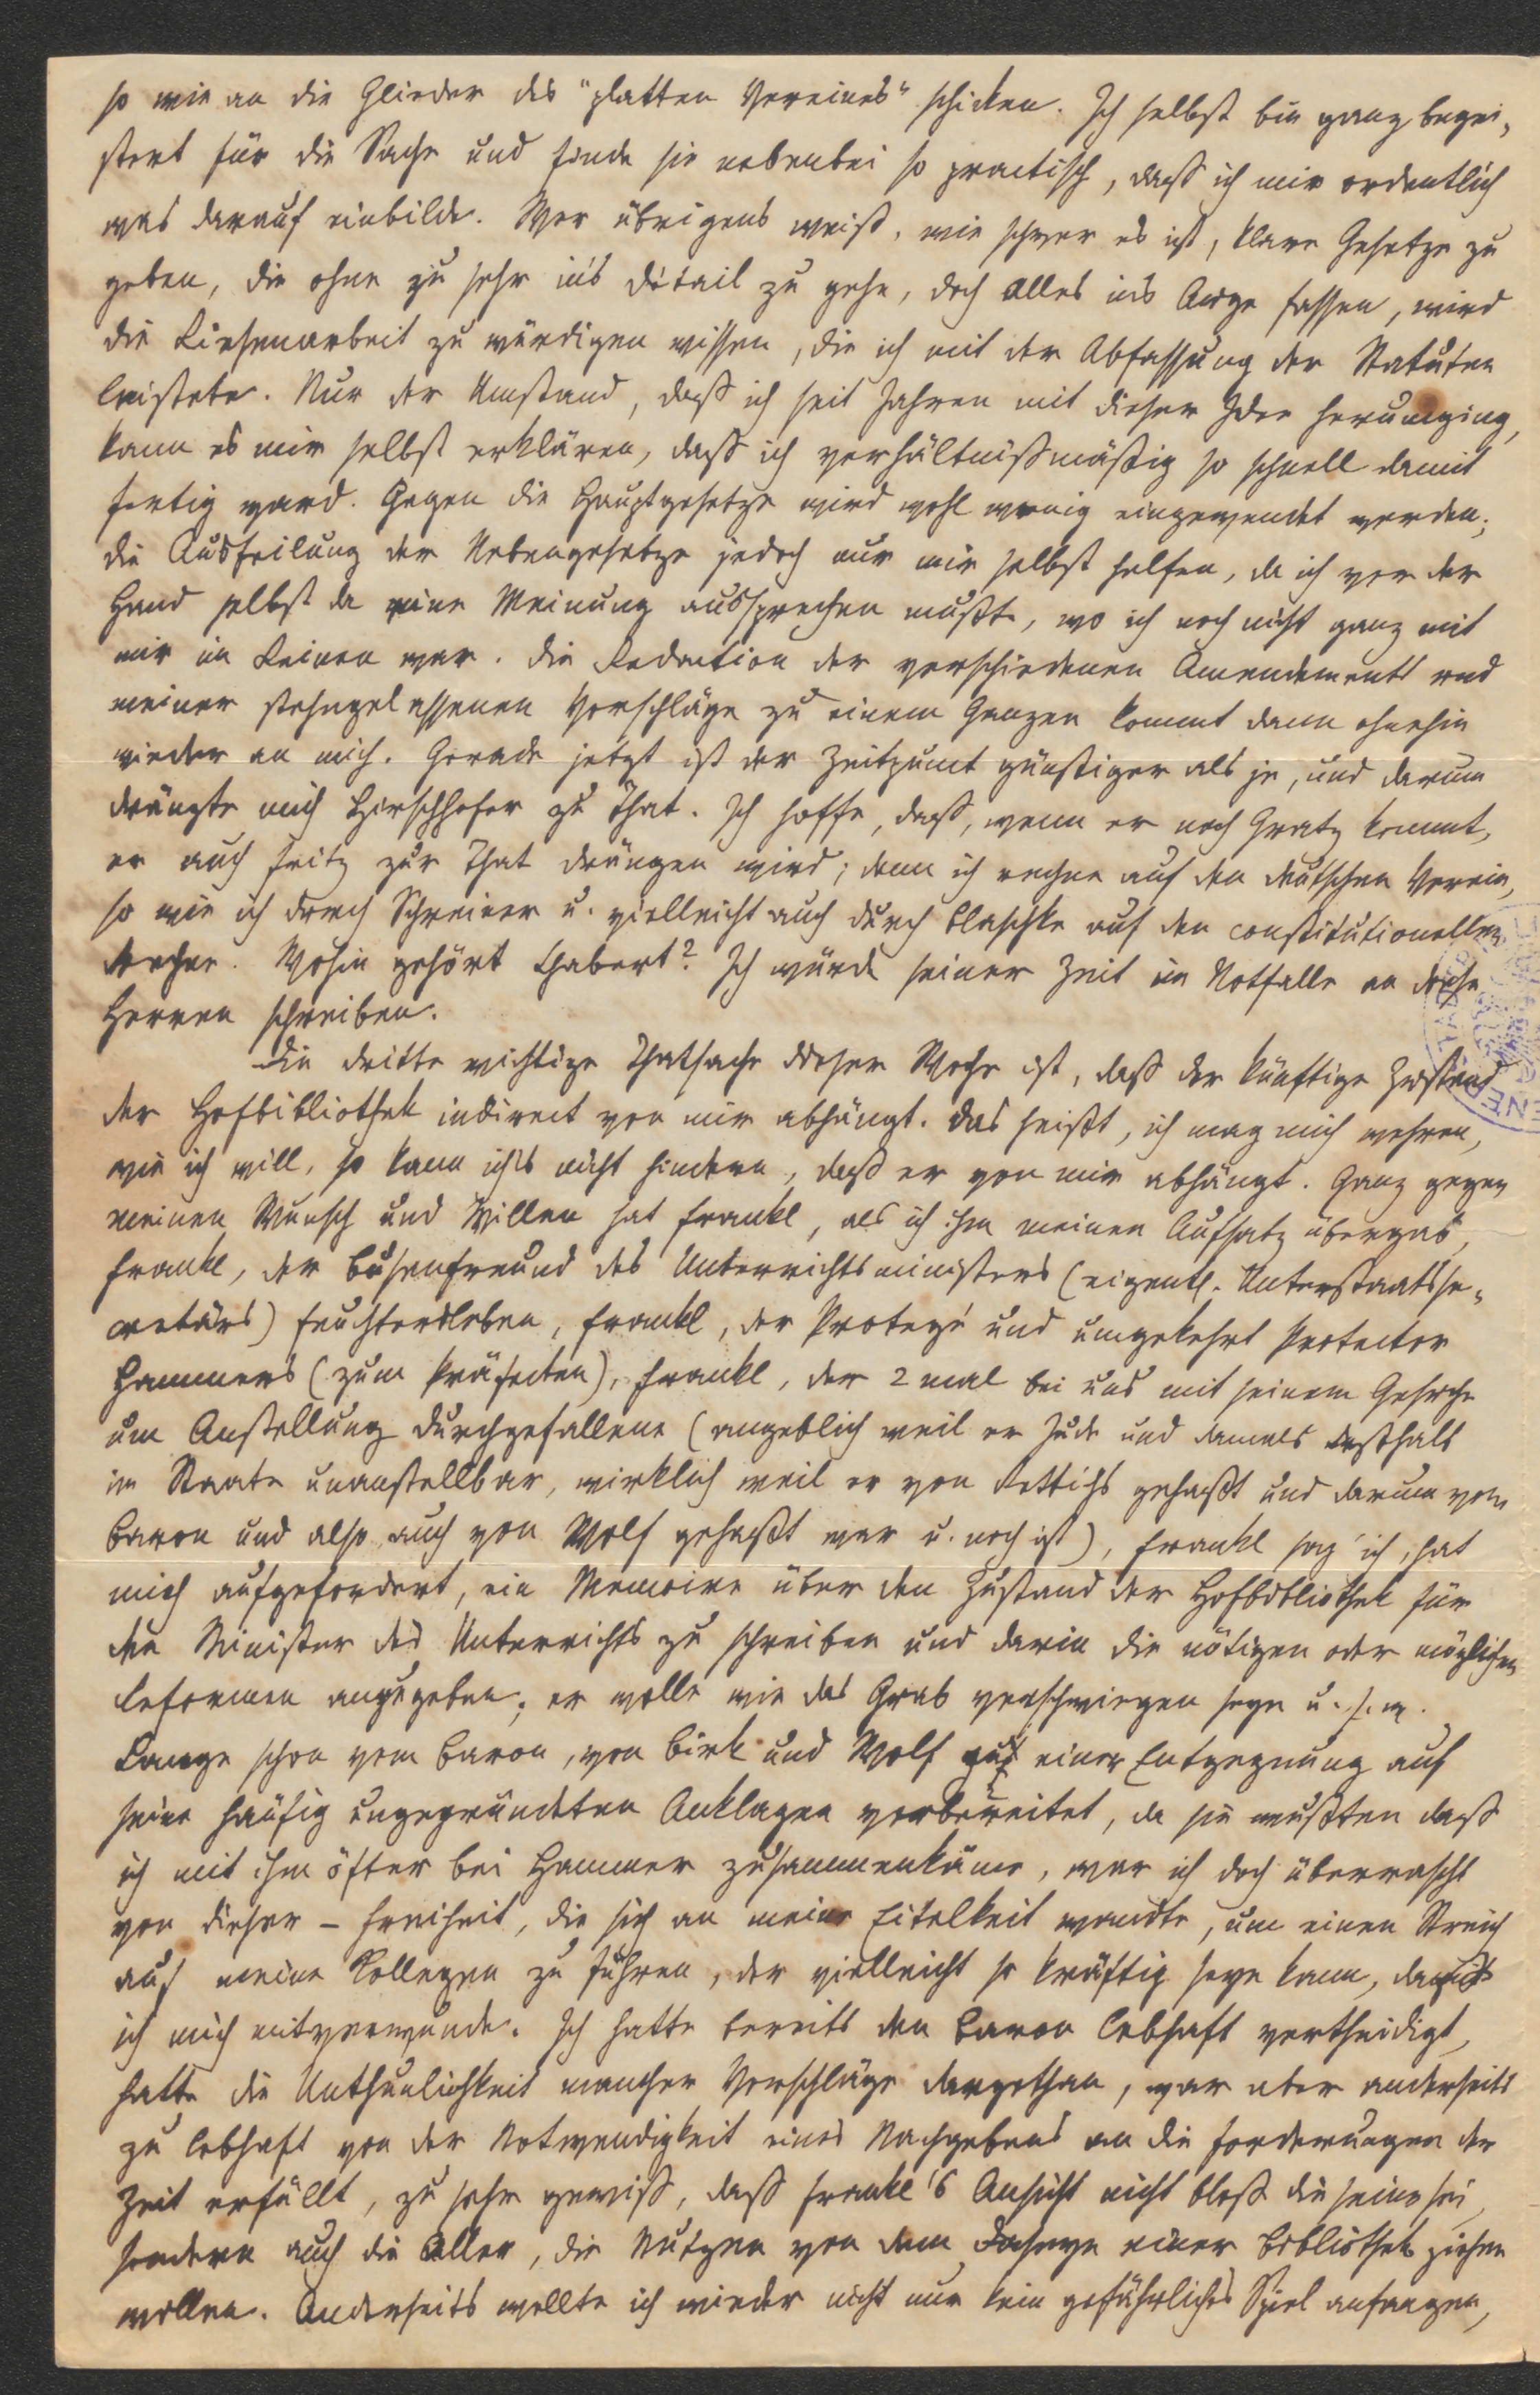 so wie an die Glieder des "platten Vereines" schicken. Ich selbst bin ganz begei-
stert für die Sache und finde sie nebenbei so practisch, dass ich mir ordentlich
was darauf einbilde. Wer übrigens weiß, wie schwer es ist, klare Gesetze zu
geben, die ohne zu sehr in's détail zu gehn, doch Alles in's Auge fassen, wird
die Riesenarbeit zu würdigen wissen, die ich mit der Abfassung der Statuten
leistete. Nur der Umstand, dass ich seit Jahren mit dieser Idee herumging,
kann es mir selbst erklären, dass ich verhältnißmäßig so schnell damit
fertig ward. Gegen die Hauptgesetze wird wohl wenig eingewendet werden;
die Ausfeilung der Nebengesetze jedoch nur mir selbst helfen, da ich vor der
Hand selbst da eine Meinung aussprechen mußte, wo ich noch nicht ganz mit
mir im Reinen war. Die Redaction der verschiedenen Amendements und
meiner stehngelassenen Vorschläge zu einem Ganzen kommt dann ohnehin
wieder an mich. Gerade jetzt ist der Zeitpunct günstiger als je, und darum
drängte mich Hirschhofer zu That. Ich hoffe, dass, wenn er nach Gratz kommt,
er auch Fritz zur That drängen wird; denn ich rechne auf den deutschen Verein,
so wie ich durch Schreiner u. vielleicht auch durch Blaschke auf den constitutionellen
rechne. Wohin gehört Chabert? Ich würde seiner Zeit im Notfalle an diese
Herren schreiben.
Die dritte wichtige Thatsache dieser Woche ist, daß der künftige Zustand
der Hofbibliothek indirect von mir abhängt. Das heißt, ich mag mich wehren,
wie ich will, so kann ich's nicht hindern, daß er von mir abhängt. Ganz gegen
meinen Wunsch und Willen hat Frankl, als ich ihm meinen Aufsatz übergab,
Frankl, der Busenfreund des Unterrichtsministers (eigentl. Unterstaatsse-
cretärs) Feuchtersleben, Frankl, der Protegé und umgekehrt Protector
Hammers (zum Präfecten), Frankl, der 2 mal bei uns mit seinem Gesuche
um Anstellung durchgefallene (angeblich weil er Jude und damals deßhalb
im Staate unanstellbar, wirklich weil er von Rettichs gehaßt und darum vom
Baron und also auch von Wolf gehaßt war u. noch ist), Frankl sag' ich, hat
mich aufgefordert, ein Memoire über den Zustand der Hofbibliothek für
den Minister des Unterrichts zu schreiben und darin die nötigen oder möglichen
Reformen anzugeben; er wolle wie das Grab verschwiegen seyn u. s. w.
Lange schon vom Baron, von Birk und Wolf zu einer Entgegnung auf
seine häufig ungegründeten Anklagen vorbereitet, da sie wußten daß
ich mit ihm öfter bei Hammer zusammenkäme, war ich doch überrascht
von dieser – Freiheit, die sich an meine Eitelkeit wandte, um einen Streich
auf meine Kollegen zu führen, der vielleicht so kräftig seyn kann, daß
ich mich mitverwunde. Ich hatte bereits den Baron lebhaft vertheidigt,
hatte die Unthunlichkeit mancher Vorschläge dargethan, war aber anderseits
zu lebhaft von der Notwendigkeit eines Nachgebens an die Forderungen der
Zeit erfüllt, zu sehr gewiß, daß Frankl's Ansicht nicht bloß die seine sei,
sondern auch die Aller, die Nutzen von dem Daseyn einer Bibliothek ziehen
wollen. Anderseits wollte ich wieder nicht nur kein gefährliches Spiel anfangen,